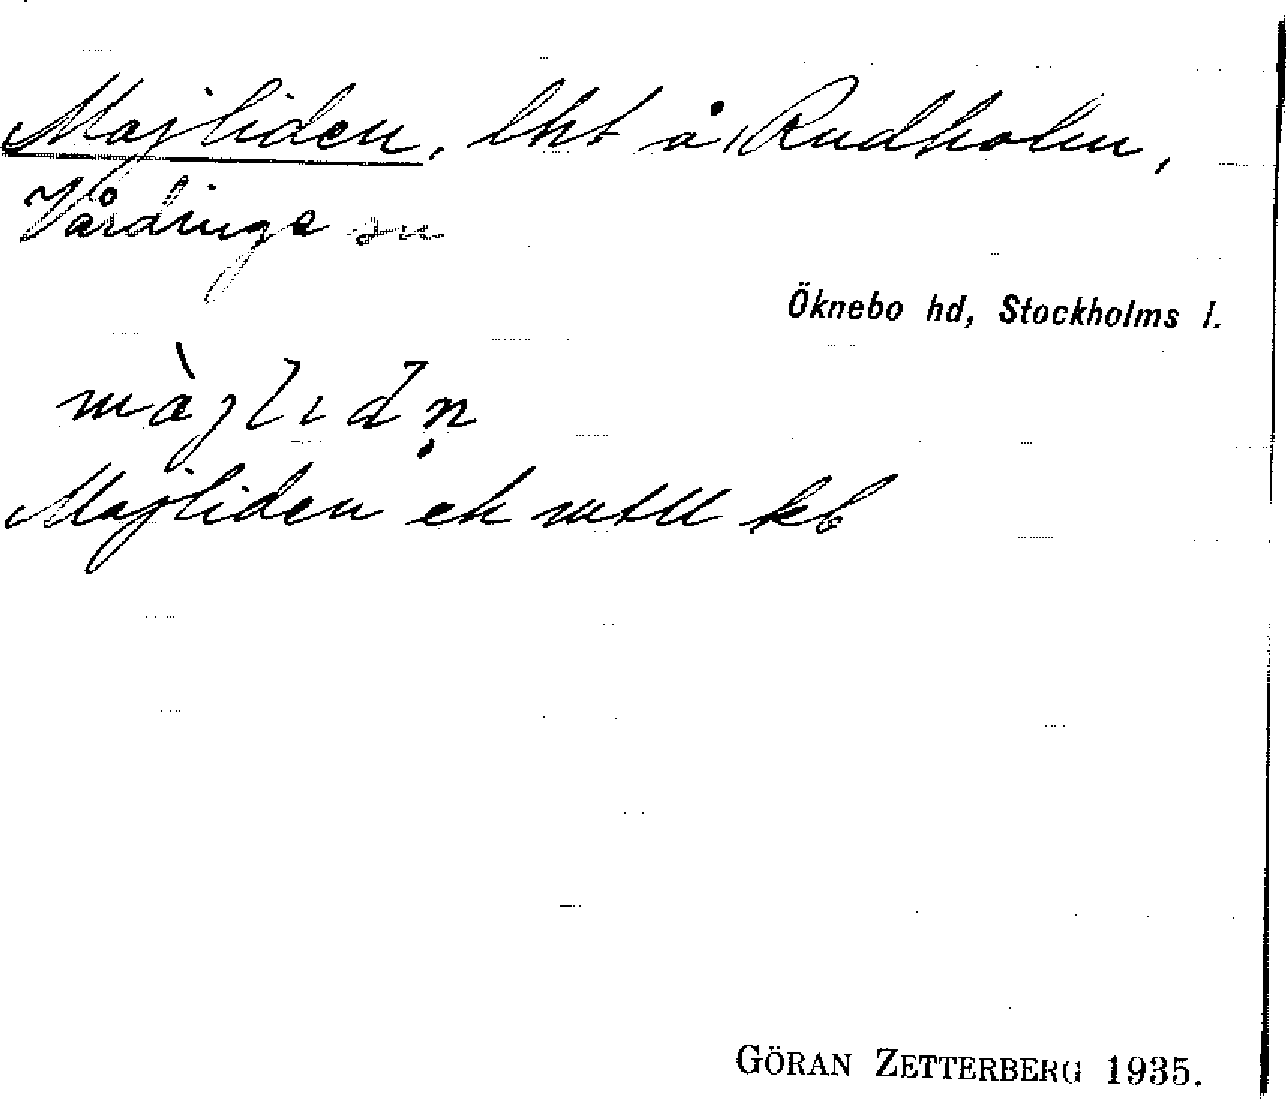 Majliden, lht å Rudholm,
Vårdinge sn
Öknebo hd, Stockholms l.
màjlidn̥
Majliden ek mtll kb
GÖRAN ZETTERBERG 1935.